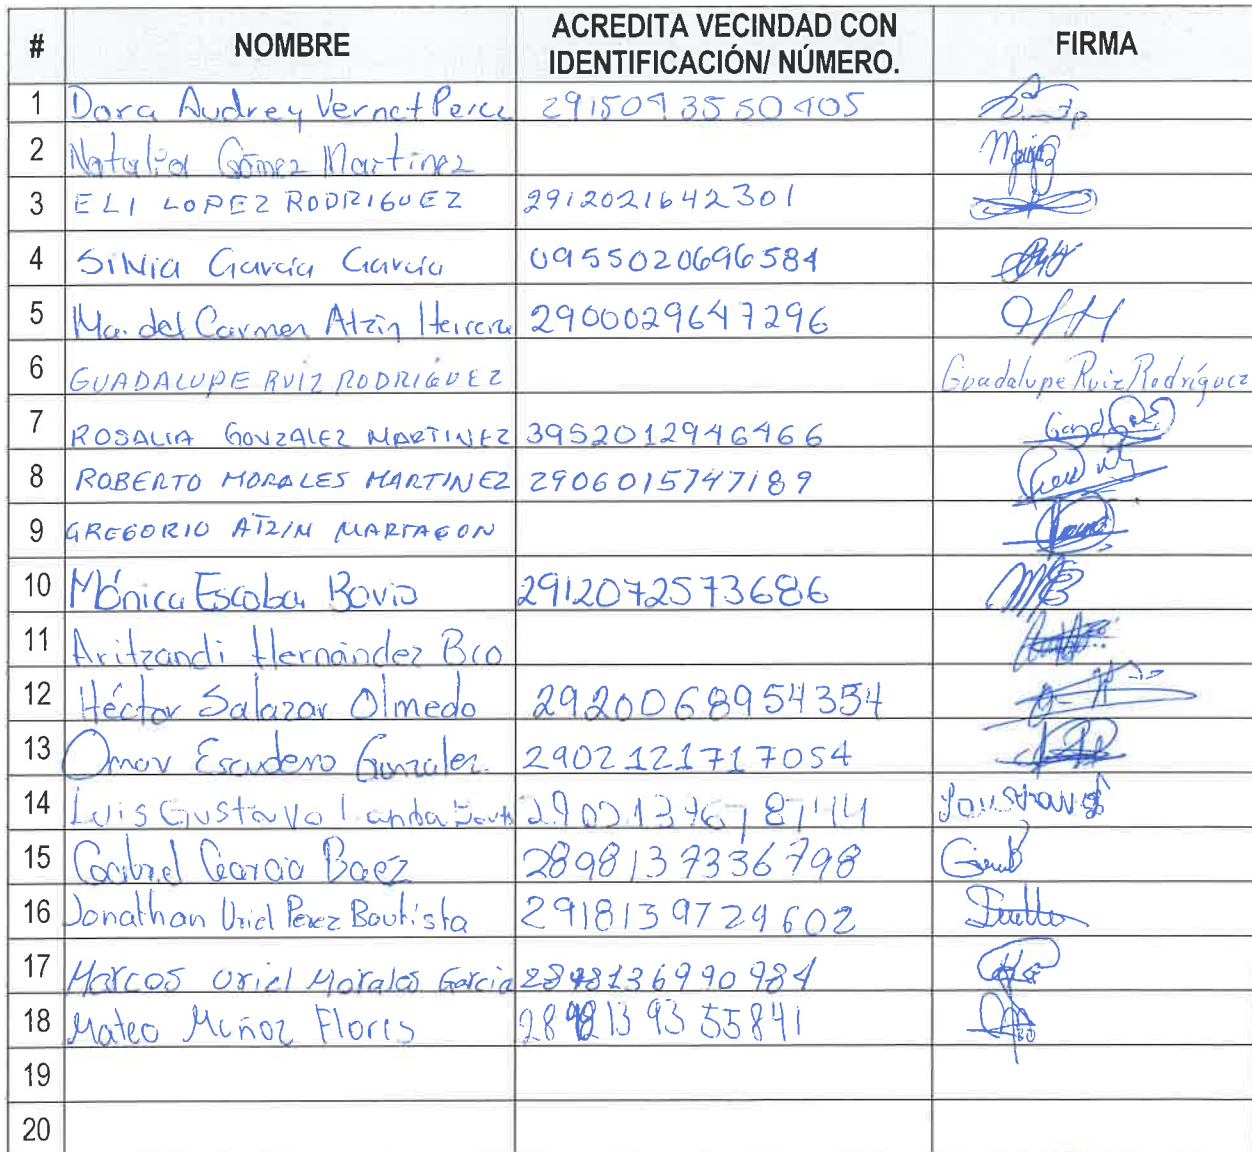 # NOMBRE ACREDITA VECINDAD CON IDENTIFICACIÓN/ NÚMERO. FIRMA
1 Dora Audrey Vernet Perez 2915093550405
2 Natalia Gómez Martinez
3 ELI LOPEZ RODRIGUEZ 2912021642301
4 Silvia Garcia Garcia 0955020696584
5 Ma. del Carmen Atzin Herrera 2900029647296
6 GUADALUPE RUIZ RODRIGUEZ Guadalupe Ruiz Rodríguez
7 ROSALIA GONZALEZ MARTINEZ 3952012946466
8 ROBERTO MORALES MARTINEZ 2906015747189
9 GREGORIO ATZIN MARTAGON
10 Mónica Escobar Bovio 2912072573686
11 Aritzandi Hernández Bco
12 Héctor Salazar Olmedo 2920068954354
13 Omar Escudero Gonzalez. 2902121717054
14 Luis Gustavo Landa
15 Gabriel Garcia Baez 2898137336798
16 Jonathan Uriel Perez Bautista 2918139729602
17 Marcos Uriel Morales Garcia 2898136990984
18 Mateo Muñoz Flores 2898139355841
19
20